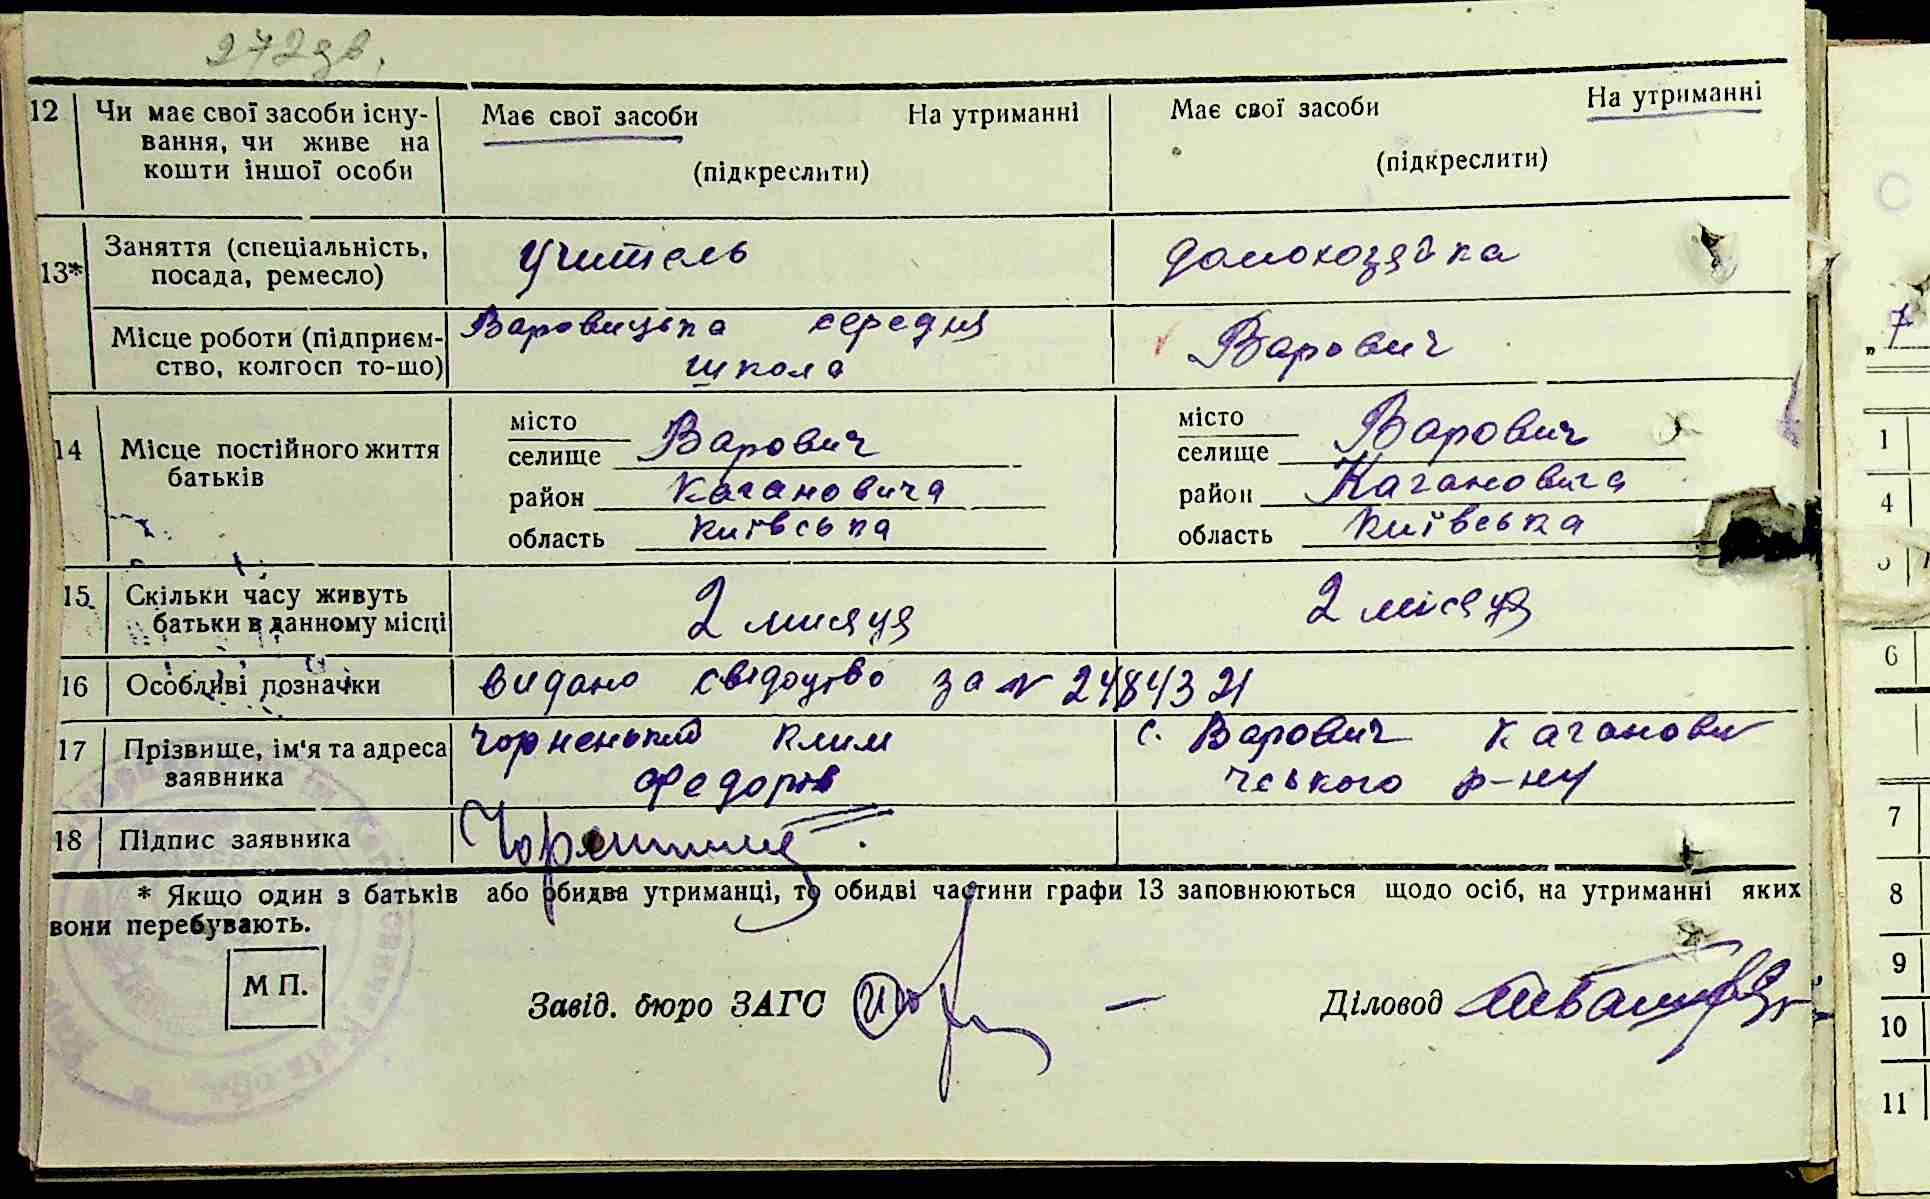 272зв.
12 Чи має свої засоби існу- Має свої засоби На утриманні Має свої засоби На утриманні
вання, чи живе на
кошти іншої особи (підкреслити) (підкреслити)
13* Заняття (спеціальність, учитель домохозяйка
посада, ремесло)
Місце роботи (підприєм- Варовицька середня Варович
ство, колгосп то-що) школа
місто місто
14 Місце постійного життя селище Варович селище Варович
батьків район Кагановича район Кагановича
область київська область київська
15 Скільки часу живуть 2 мисяця 2 місяця
батьки в данному місці
16 Особливі позначки видано свідоцтво за № 24843
17 Прізвище, ім'я та адреса Чорненький Клим с. Варович Каганови
заявника Федорів чського р-ну
18 Підпис заявника
* Якщо один з батьків або обидва утриманці, то обидві частини графи 13 заповнюються щодо осіб, на утриманні яких
вони перебувають.
М П.
Завід. бюро ЗАГС Діловод
7
1
4
5
6
7
8
9
10
11